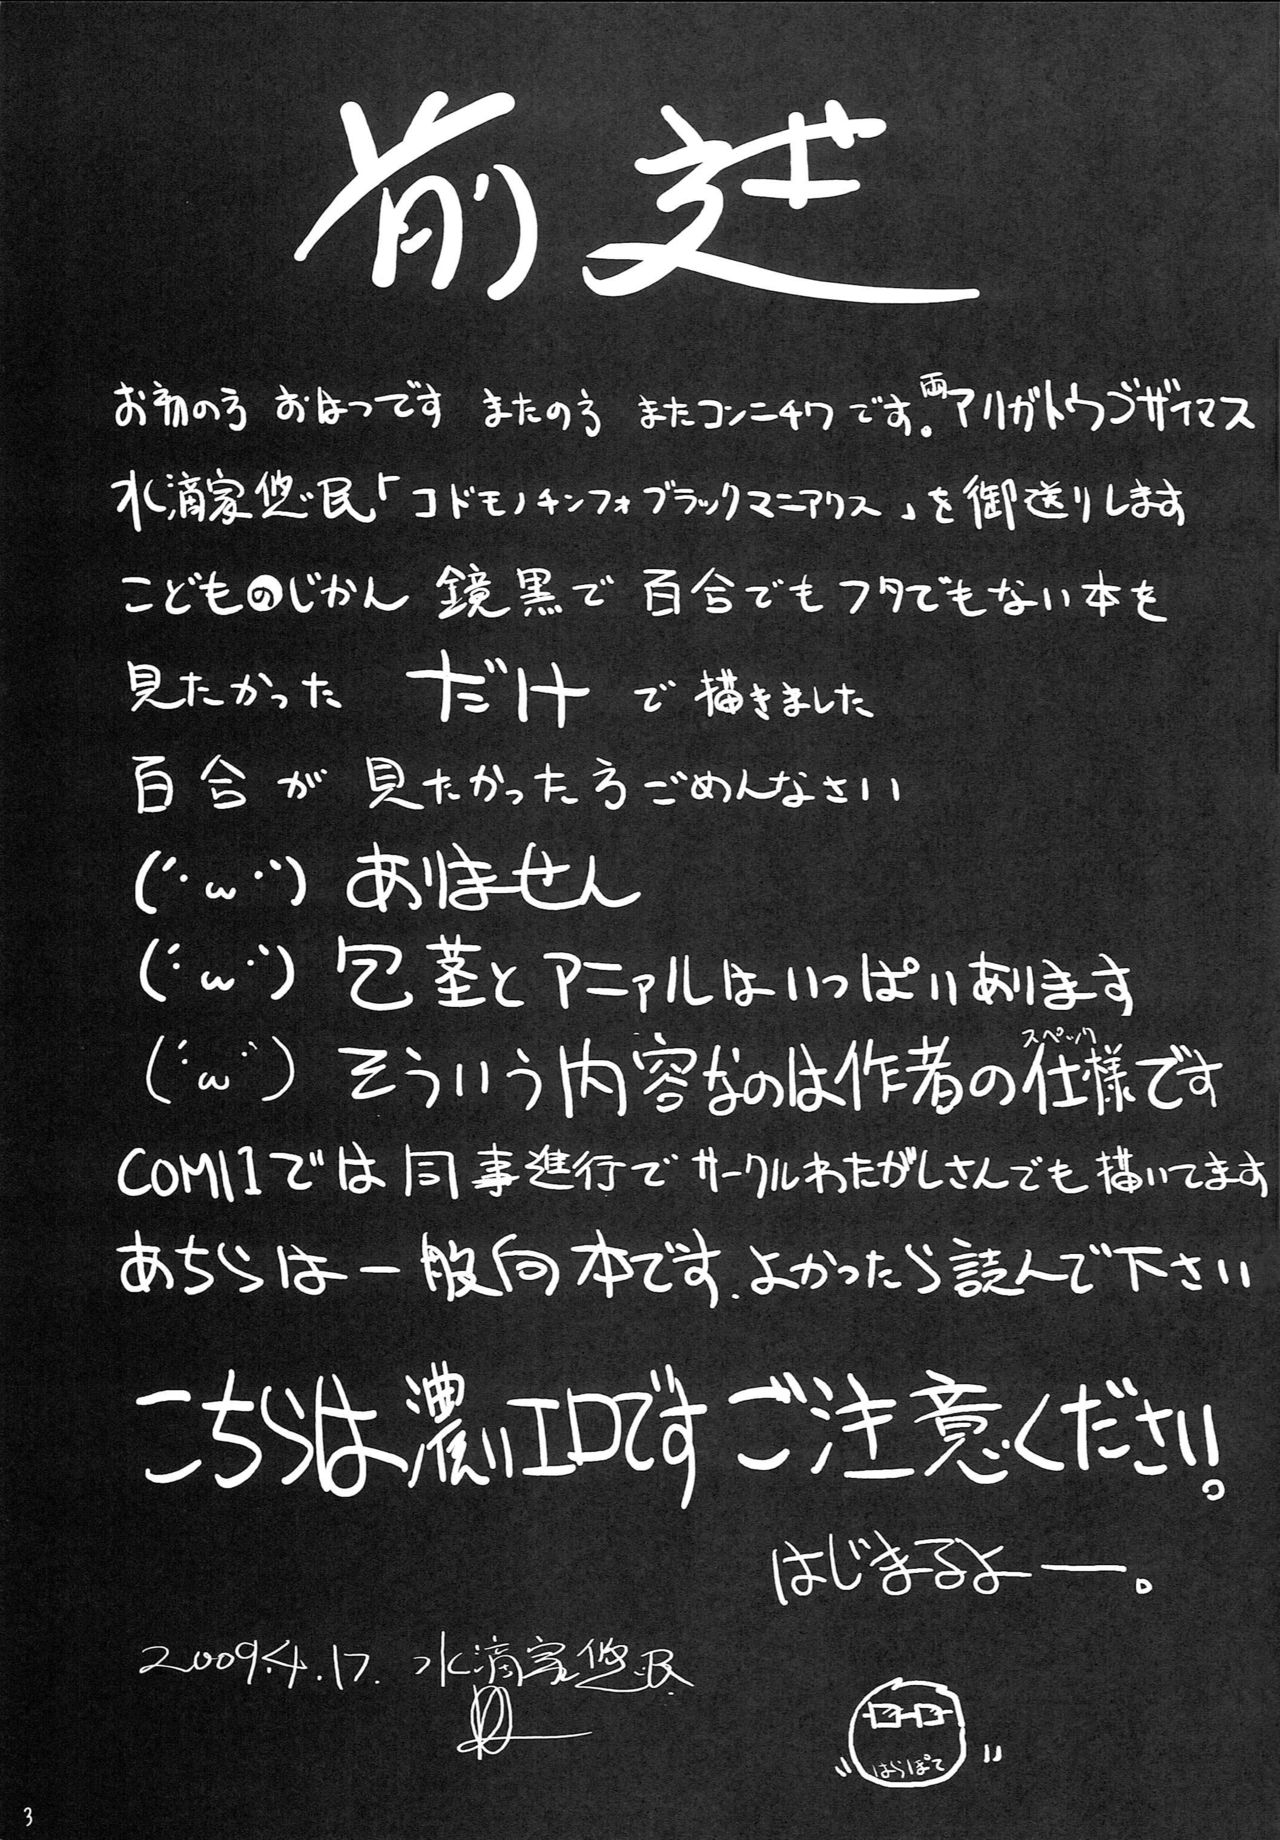 前述
お初の方 おはつです またの方 またコンニチワです。両アリガトウゴザイマス
水滴家悠民「コドモノチンフォブラックマニアクス」を御送りします
こどものじかん 鏡黒で 百合でもフタでもない本を
見たかった だけ で描きました
百合が 見たかった方ごめんなさい
(´・ω・`) ありません
(´・ω・`) 包茎とアニァルはいっぱいあります
(´・ω・`) そういう内容なのは作者の仕様です
スペック
COMIC1では同事進行でサークルわたがしさんでも描いてます
あちらは一般向本です.よかったら読んで下さい
こちらは濃いエロです ご注意ください。
はじまるよー。
2009.4.17. 水滴家悠民
はらぽて
3